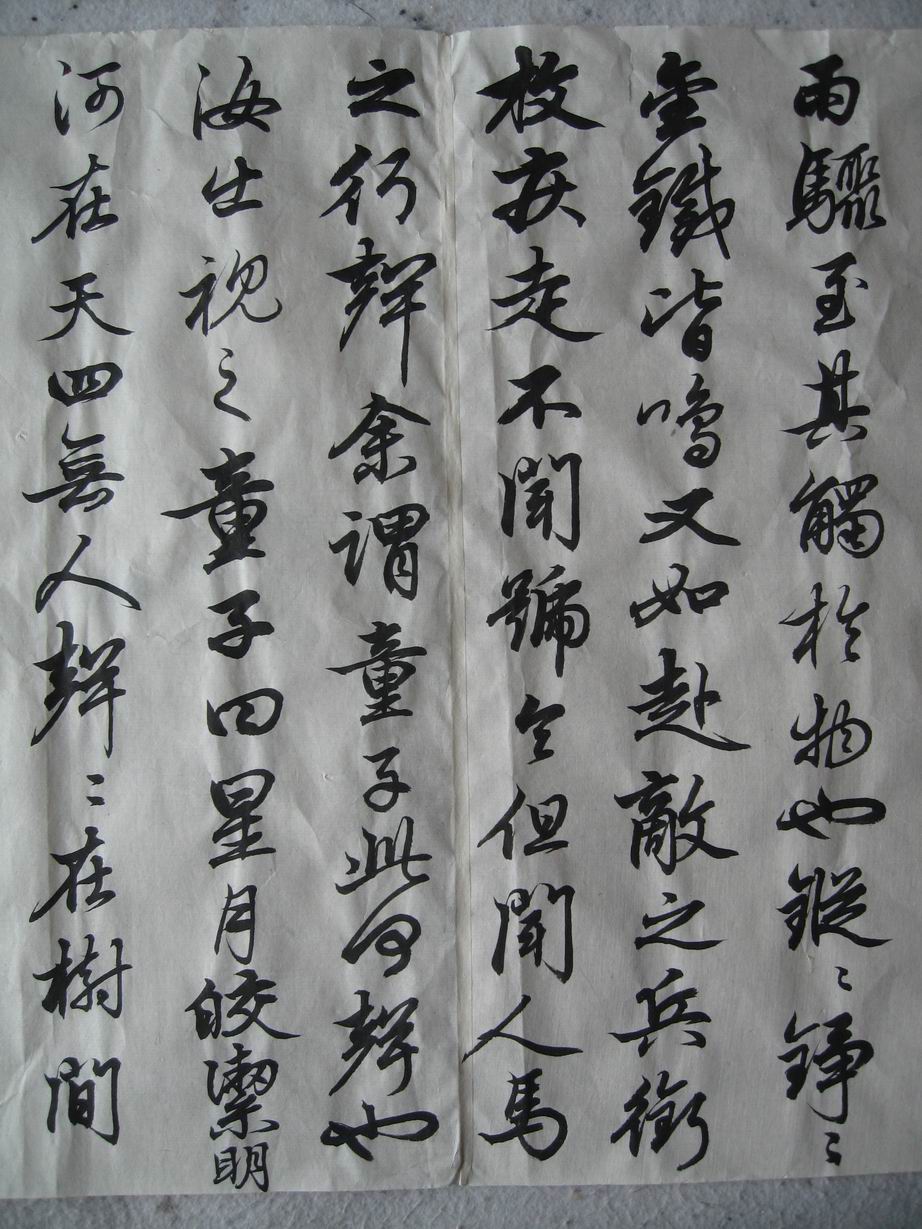 雨驟至其觸於物也鏦〻錚〻
金鐵皆鳴又如赴敵之兵銜
枚疾走不聞號令但聞人馬
之行聲余謂童子此何聲也
汝出視之童子曰星月皎潔明
河在天四無人聲〻在樹間